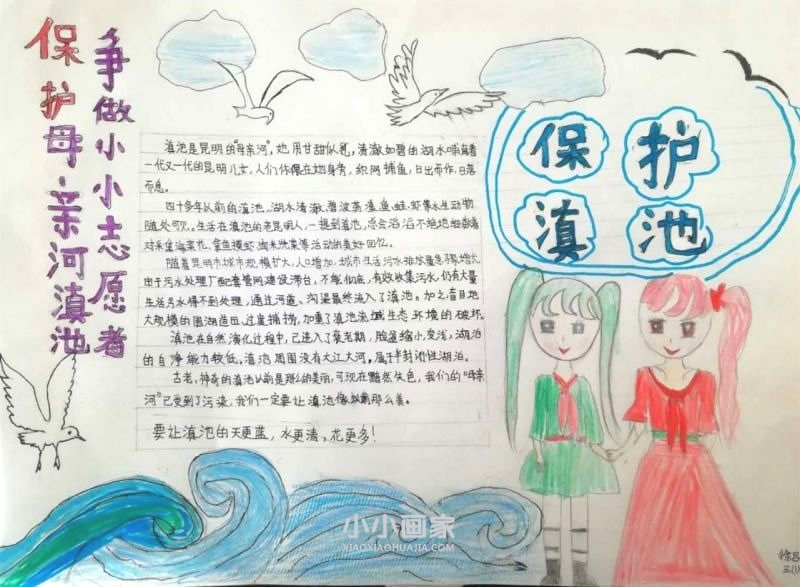 保护母亲河滇池
争做小小志愿者
保护
滇池
滇池是昆明的"母亲河",她用甘甜似乳,清澈如碧的湖水哺育着
一代又一代的昆明儿女,人们休偎在她身旁,织网捕鱼,日出而作,日落
而息。
四十多年以前的滇池,湖水清澈、碧波荡漾,鱼、蛙、虾等水生动物
随处可见。生活在滇池的老昆明人,一提到滇池,总会滔滔不绝地细数着
对采集海菜花、拿鱼摸虾、淘米洗菜等活动的美好回忆。
随着昆明市城市规模扩大,人口增加,城市生活污水排放量急剧增大
由于污水处理厂配套管网建设滞台,不能彻底,有效收集污水,仍有大量
生活污水得不到处理,通过河道、沟渠最终流入了滇池。加之,盲目地
大规模的围湖造田,过度捕捞,加重了滇池流域生态环境的破坏。
滇池在自然演化过程中,已进入了衰老期,脸盆缩小,变浅,湖泊
的自净能力较低,滇池周围没有大江大河,属于半封闭性湖泊。
古老,神奇的滇池以前是那么的美丽,可现在黯然失色,我们的"母亲
河"已受到了污染,我们一定要让滇池像以前那么美。
要让滇池的天更蓝,水更清,花更多!
小小画家
XIAOXIAOHUAJIA.COM
三(1)